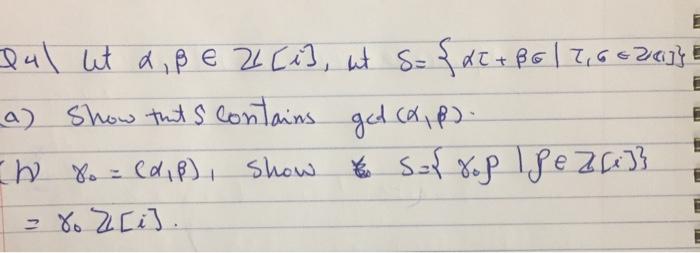 Q4\ let α, β ∈ ℤ[i], let S = { ατ + βσ | τ, σ ∈ ℤ[i] }
(a) Show that S contains gcd(α, β).
(b) γ₀ = (α, β), show S = { γ₀ρ | ρ ∈ ℤ[i] }
= γ₀ ℤ[i].